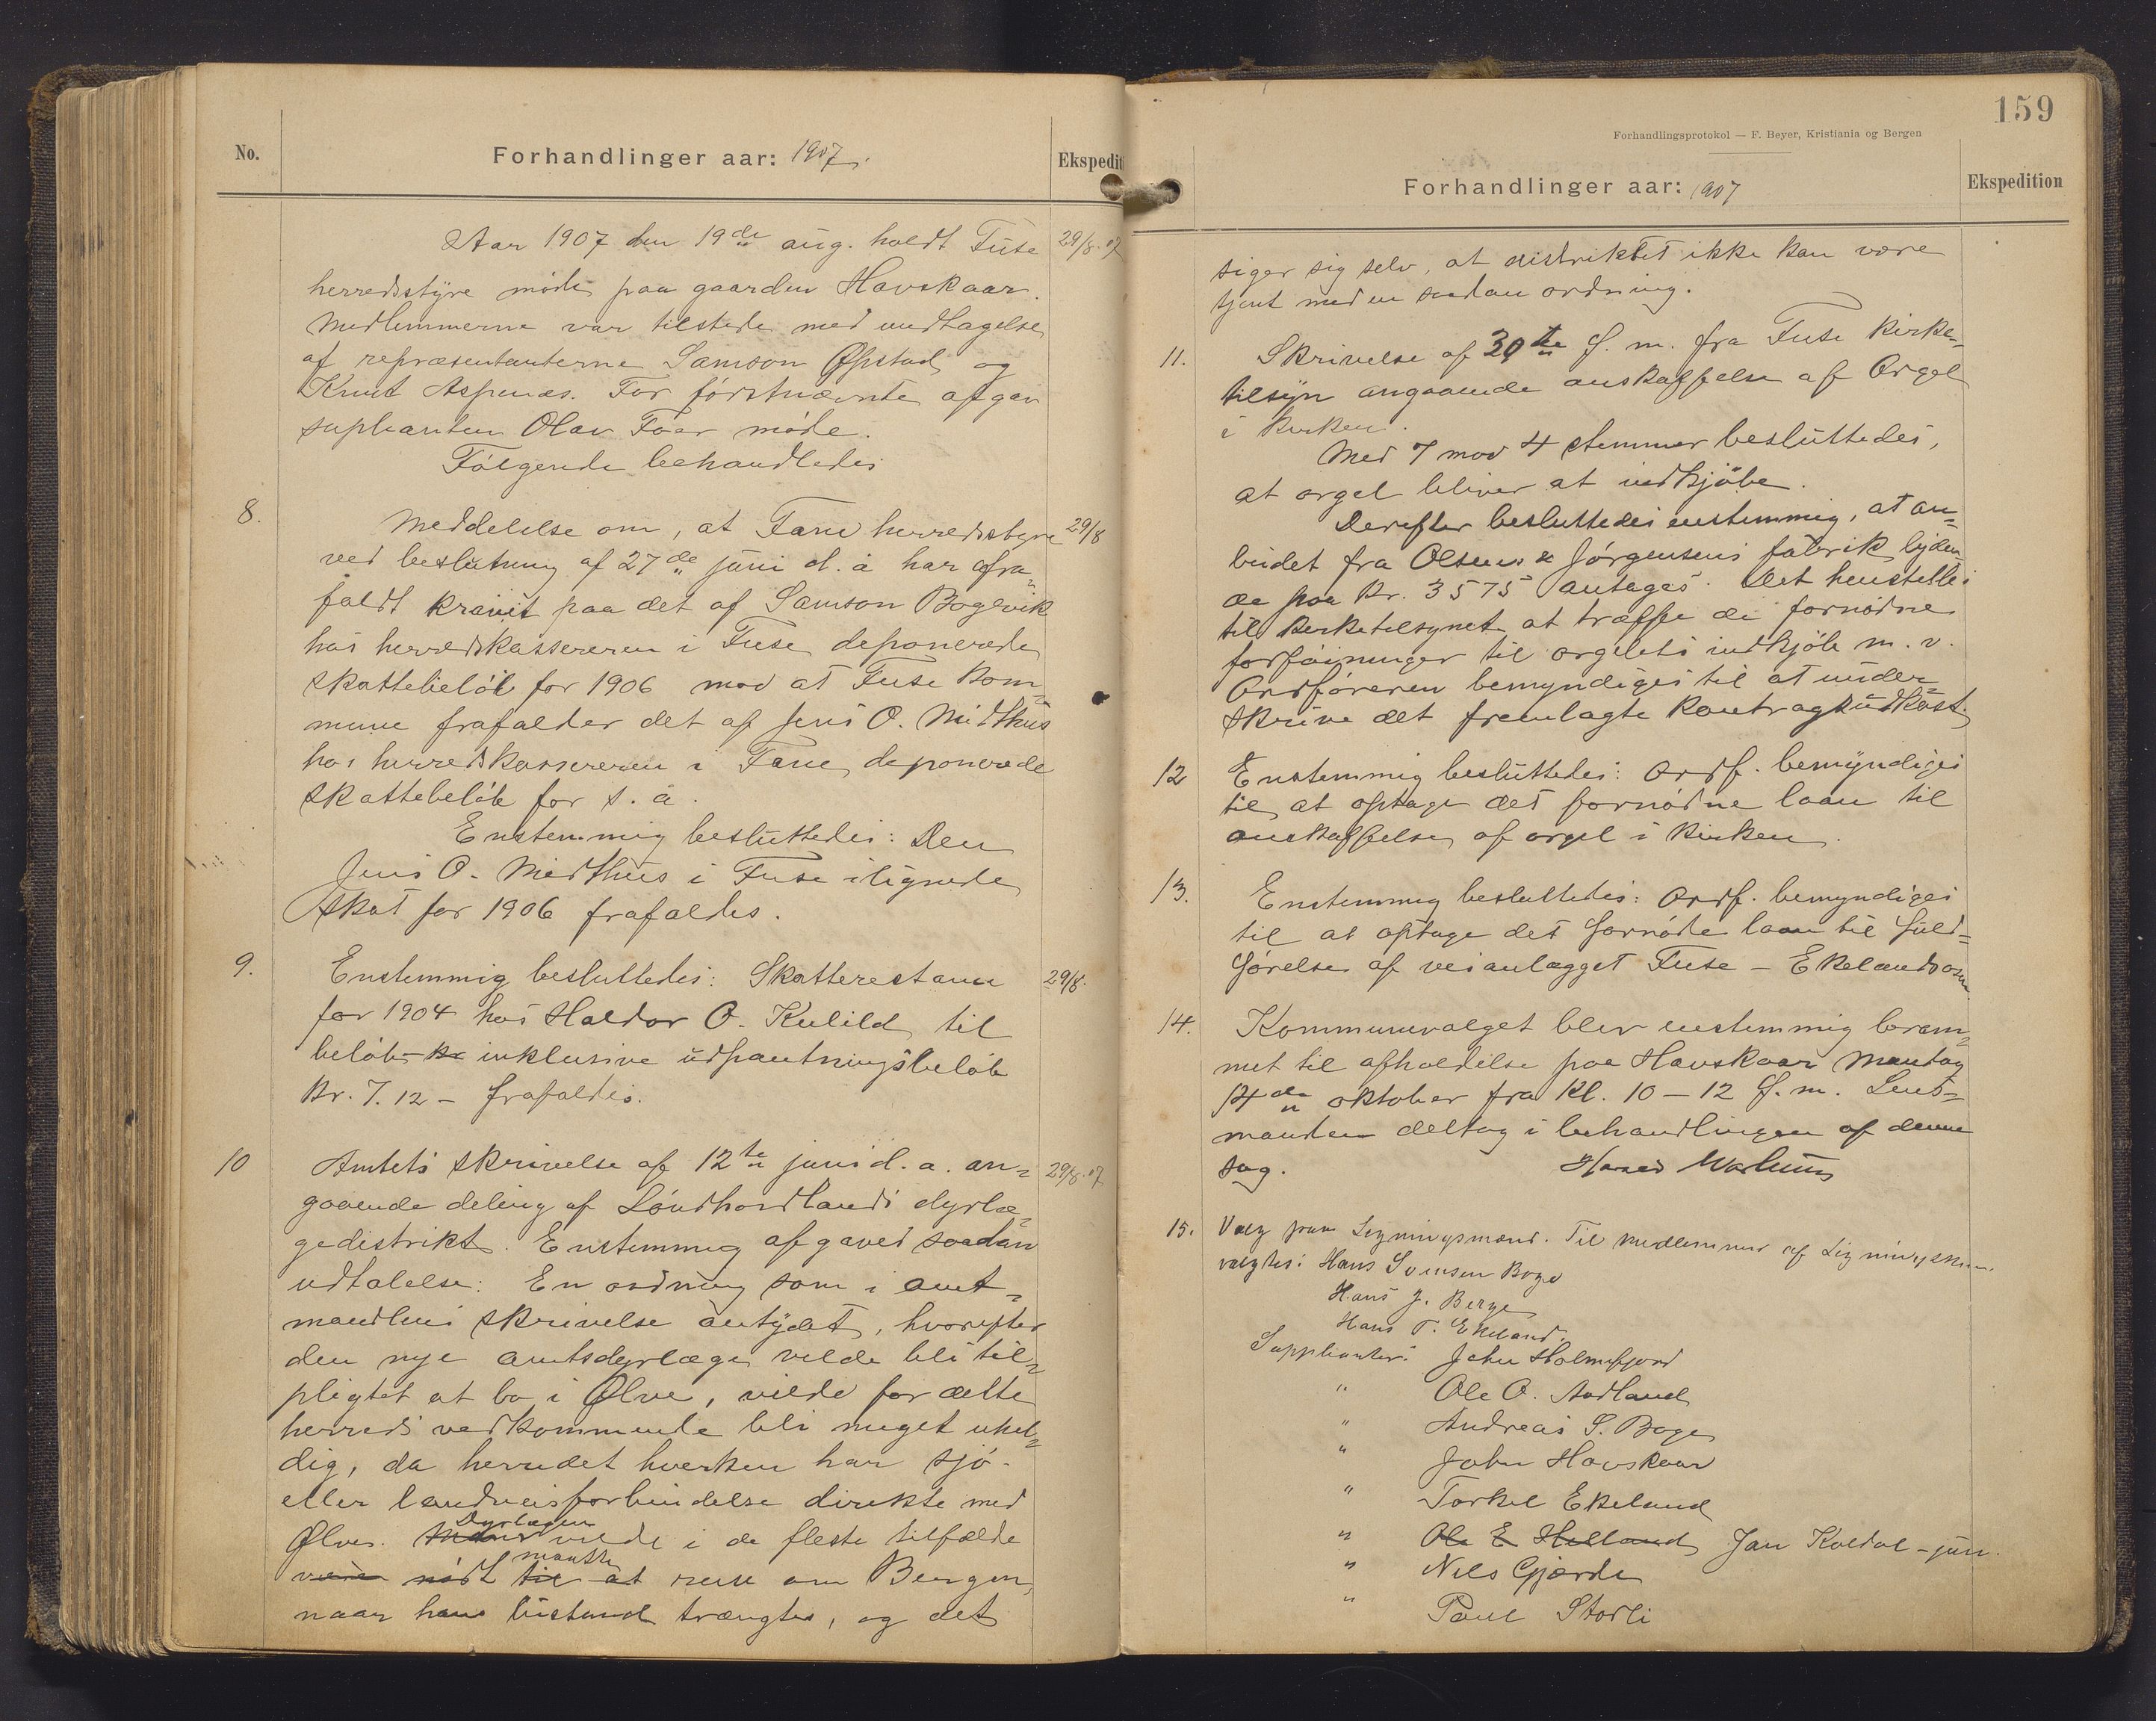 No.
Forhandlinger aar: 1907.
Ekspedit
Aar 1907 den 19de aug. holdt Fuse
29/8.07
herredsstyre møde paa gaarden Havskaar.
Medlemmerne var tilstede med undtagelse
af repræsentanterne Samson Øpstad og
Knut Aspenæs. For førstnævnte afgav
suplianten Olav Tøar møde.
Følgende behandledes
8.
Meddelelse om, at Fane herredsstyre
29/8
ved beslutning af 27de juni d. å har fra=
faldt kravet paa det af Samson Bogevik
hos herredskassereren i Fuse deponerede
skattebeløb for 1906 mod at Fuse kom=
mune frafalder det af Jens O. Midthus
hos herredskassereren i Fane deponerede
skattebeløb for s. å.
Enstemmig besluttedes: Den
Jens O. Midthus i Fuse ilignede
skat for 1906 frafaldes.
9.
Enstemmig besluttedes: Skatterestance
29/8.
for 1904 hos Haldor O. Kulild til
beløb kr inklusive udpantningsbeløb
Kr. 7.12 - frafaldes.
10
Amtets skrivelse af 12te juni d. a. an=
29/8.07
gaaende deling af Søndhordlands dyrlæ=
gedistrikt. Enstemmig afgaves saadan
udtalelse: En ordning som i amt=
mandens skrivelse antydet, hvorefter
den nye amtsdyrlæge vilde bli til=
pligtet at bo i Ølve, vilde for dette
herreds vedkommende bli meget uhel=
dig, da herredet hverken har sjø-
eller landveisforbindelse direkte med
Dyrlægen
Ølve. vilde i de fleste tilfælde
maatte
være nødt til at reise om Bergen,
naar hans bistand trængtes, og det
159
Forhandlingsprotokol — F. Beyer, Kristiania og Bergen
Forhandlinger aar: 1907
Ekspedition
siger sig selv, at distriktet ikke kan være
tjent med en saadan ordning.
11.
Skrivelse af 30te f. m. fra Fuse kirke=
tilsyn angaaende anskaffelse af Orgel
i kirken.
Med 7 mod 4 stemmer besluttedes,
at orgel bliver at indkjøbe.
Derefter besluttedes enstemmig, at an=
budet fra Olsens & Jørgensens fabrik lyden
de paa Kr. 3575 antages. Det henstilles
til kirketilsynet at træffe de fornødne
forføininger til orgelets indkjøb m. v.
Ordføreren bemyndiges til at under=
skrive det fremlagte kontragtudkast.
12
Enstemmig besluttedes: Ordf. bemyndiges
til at optage det fornødne laan til
anskaffelse af orgel i kirken.
13.
Enstemmig besluttedes: Ordf. bemyndiges
til at optage det fornøde laan til fuld=
førelse af veianlægget Fuse - Ekelandsosen.
14.
Kommunevalget blev enstemmig beram=
met til afholdelse paa Havskaar Mandag
14de oktober fra kl. 10 - 12 f. m. Lens=
manden deltog i behandlingen af denne
sag.
15.
Valg paa Ligningsmænd. Til medlemmer af Ligningskom.
valgtes: Hans Svensen Boge
Hans J. Berge
Hans T. Ekeland.
Supplianter: John Holmefjord
" Ole O. Aadland
" Andreas S. Boge
" John Havskaar
" Torkel Ekeland
" Ole E Helland Jan Koldal - jun.
" Nils Gjærde
" Paul Storli